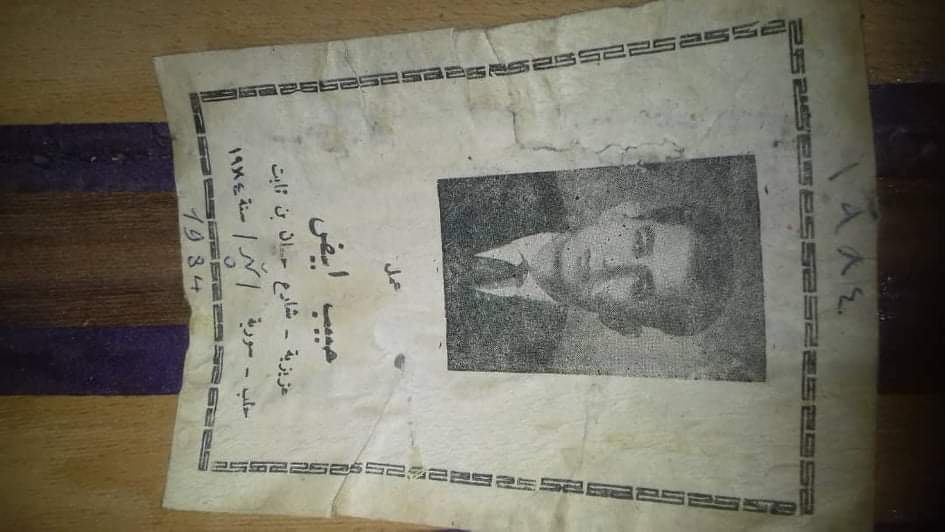 ١٩٨٤
عمل
حبيب ابيض
عزيزية - شارع حسان بن ثابت
حلب - سورية / سنة ١٩٨٤
1984